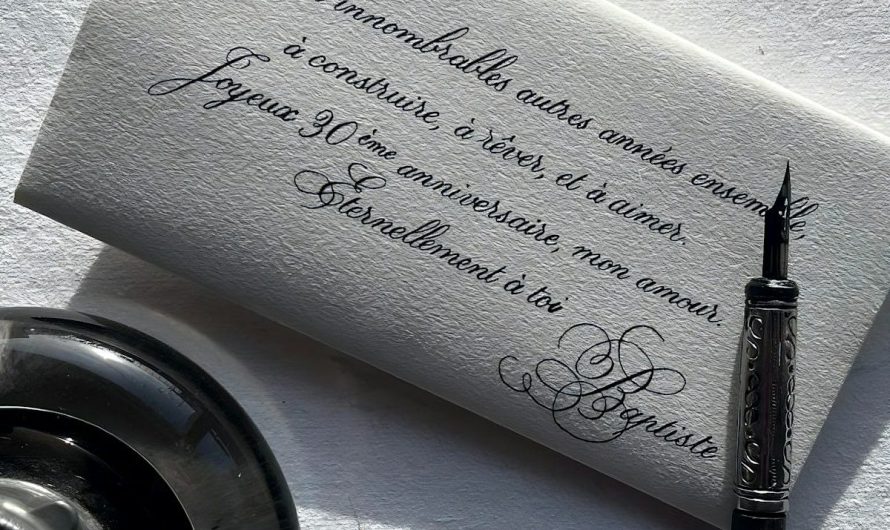 innombrables autres années ensemble,
à construire, à rêver, et à aimer.
Joyeux 30 ème anniversaire, mon amour.
Éternellement à toi
Baptiste